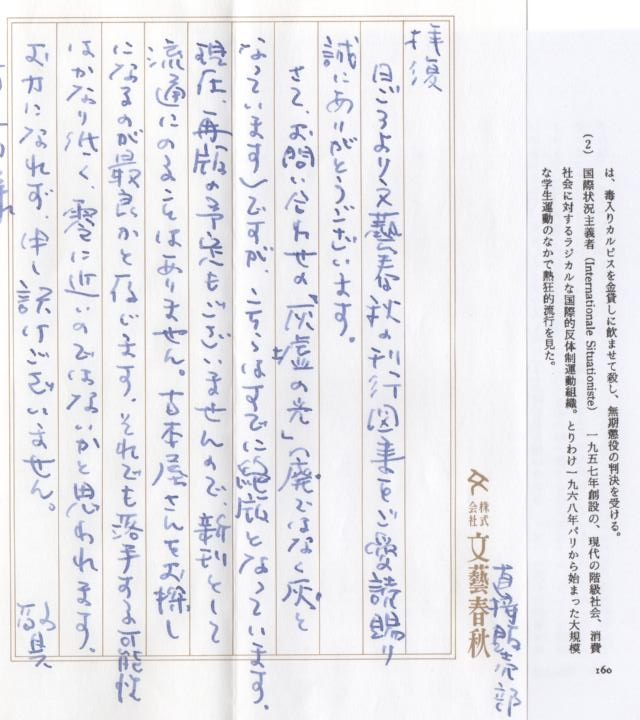 は、毒入りカルピスを金貸しに飲ませて殺し、無期懲役の判決を受ける。
(2) 国際状況主義者(Internationale Situationiste) 一九五七年創設の、現代の階級社会、消費
社会に対するラジカルな国際的反体制運動組織。とりわけ一九六八年パリから始まった大規模
な学生運動のなかで熱狂的流行を見た。
160
直接販売部
株式会社 文藝春秋
拝復
日ごろより文藝春秋の刊行図書をご愛読賜り
誠にありがとうございます。
さて、お問い合わせの「灰墟の光」(廃ではなく灰と
なっています)ですが、こちらはすでに絶版となっています。
現在、再版の予定もございませんので、新刊として
流通にのることはありません。古本屋さんをお探し
になるのが最良かと存じます。それでも落手する可能性
はかなり低く、零に近いのではないかと思われます。
お力になれず、申し訳けございません。 敬具